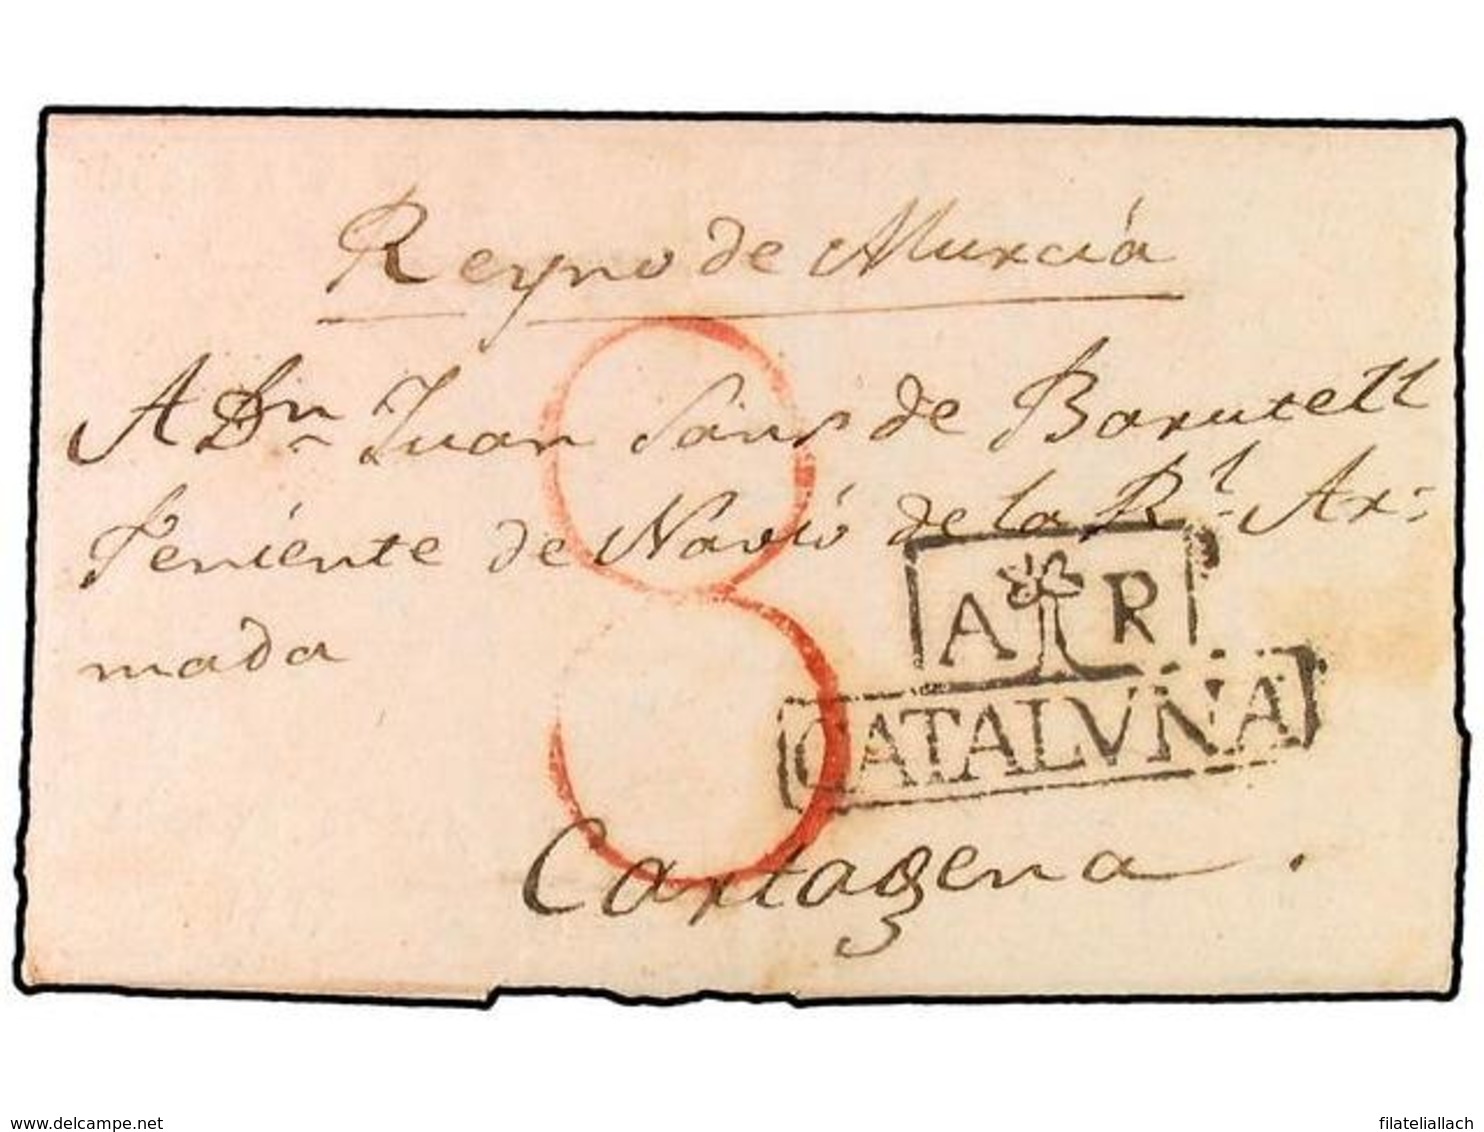 Reyno de Murciá
A Dn. Juan Sans de Barutell
Teniénte de Navió de la Rl. Ar=
mada
8
A R
CATALVÑA
Cartagena.
www.delcampe.net
filateliallach